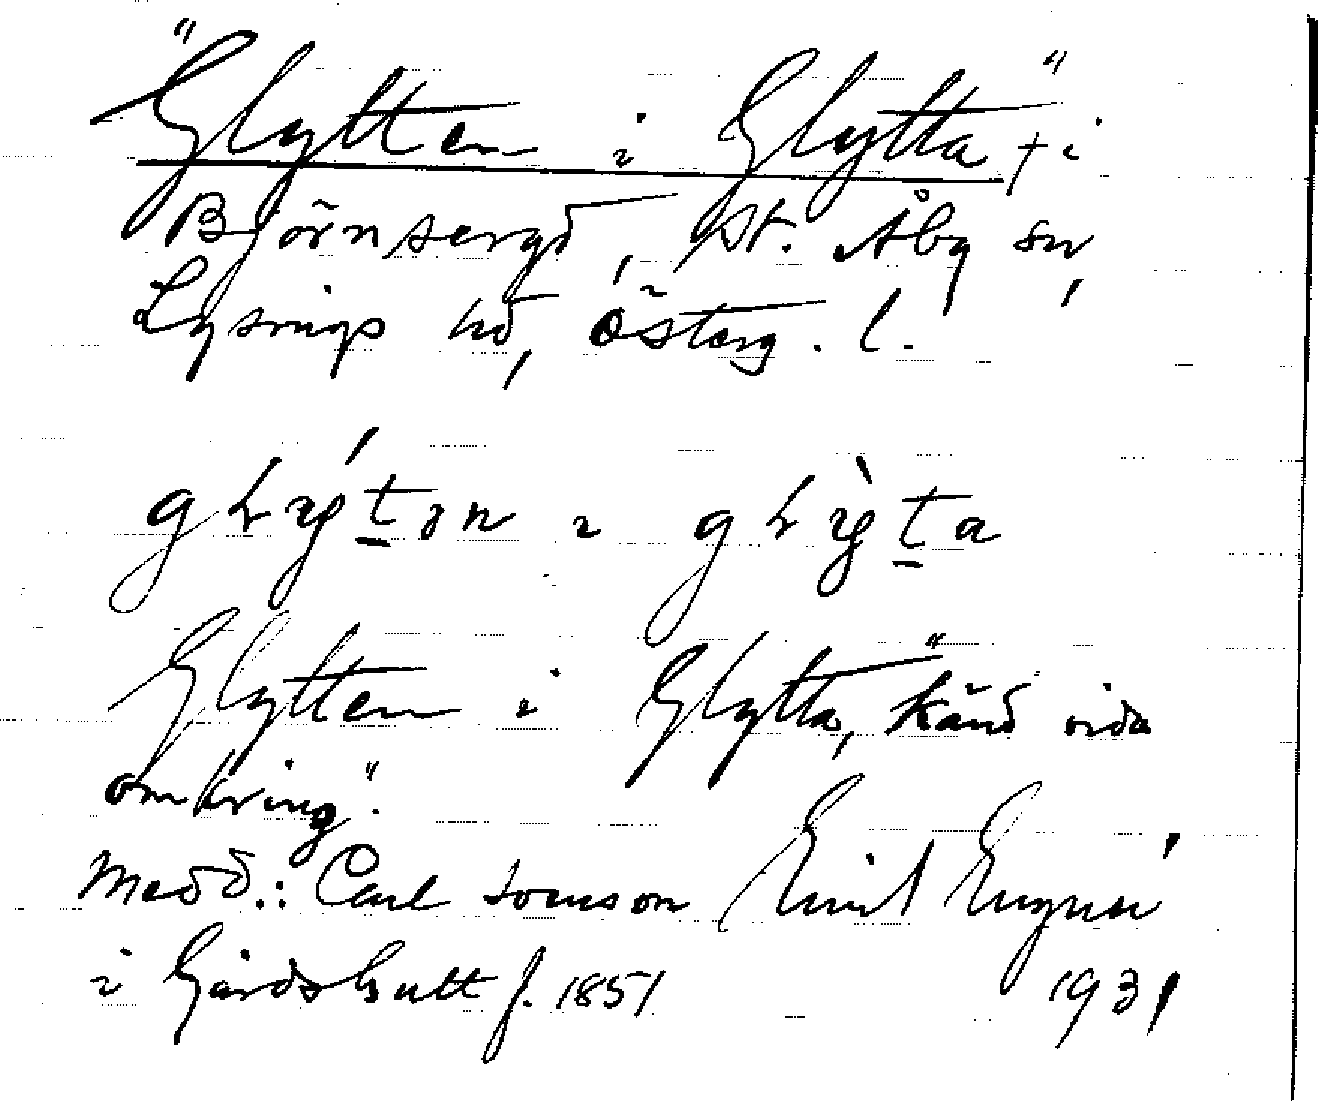 "Glytten i Glytta" † i
Björnsergd, St. Åby sn,
Lysings hd, Österg. l.
Glytten i Glytta, känd vida
omkring".
Medd.: Carl Jonsson Emil
i Gårdshult f. 1851 1931